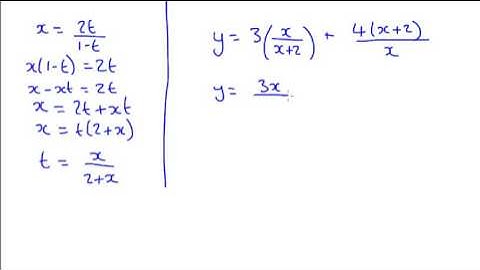 x = 2t/(1-t)
x(1-t) = 2t
x - xt = 2t
x = 2t + xt
x = t(2+x)
t = x/(2+x)
y = 3(x/(x+2)) + 4(x+2)/x
y = 3x